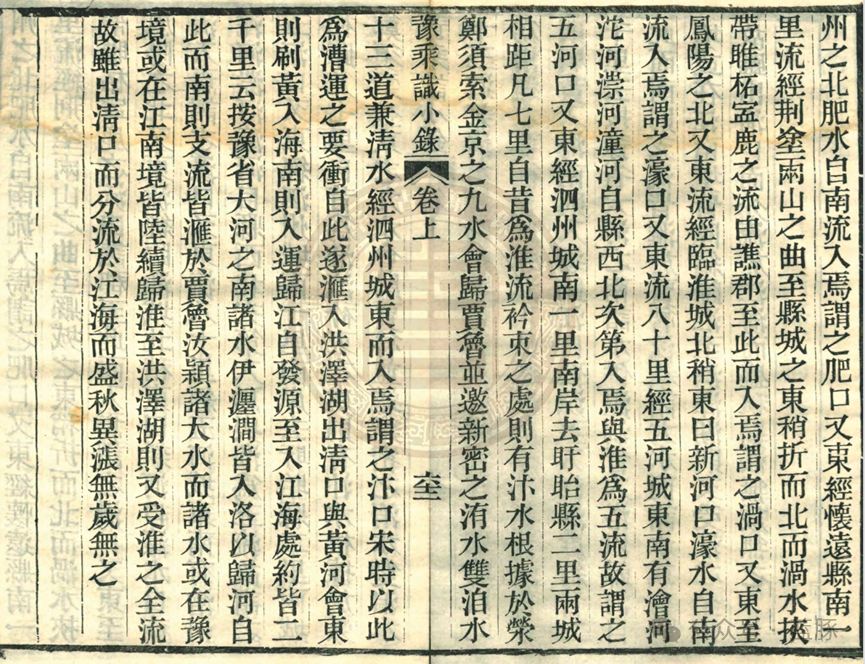 州之北肥水自南流入焉謂之肥口又東經懷遠縣南一
里流經荆塗兩山之曲至縣城之東稍折而北而渦水挾
帶睢柘寍鹿之流由譙郡至此而入焉謂之渦口又東至
鳳陽之北又東流經臨淮城北稍東曰新河口濠水自南
流入焉謂之濠口又東流八十里經五河城東南有澮河
沱河漴河潼河自縣西北次第入焉與淮爲五流故謂之
五河口又東經泗州城南一里南岸去盱眙縣二里兩城
相距凡七里自昔爲淮流衿束之處則有汴水根據於滎
鄭須索金京之九水會歸賈魯並邀新密之洧水雙洎水
豫乘識小錄 卷上
十三道兼淸水經泗州城東而入焉謂之汴口宋時以此
爲漕運之要衝自此遂滙入洪澤湖出淸口與黃河會東
則刷黃入海南則入運歸江自發源至入江海處約皆二
千里云按豫省大河之南諸水伊瀍澗皆入洛以歸河自
此而南則支流皆滙於賈魯汝潁諸大水而諸水或在豫
境或在江南境皆陸續歸淮至洪澤湖則又受淮之全流
故雖出淸口而分流於江海而盛秋異漲無歲無之